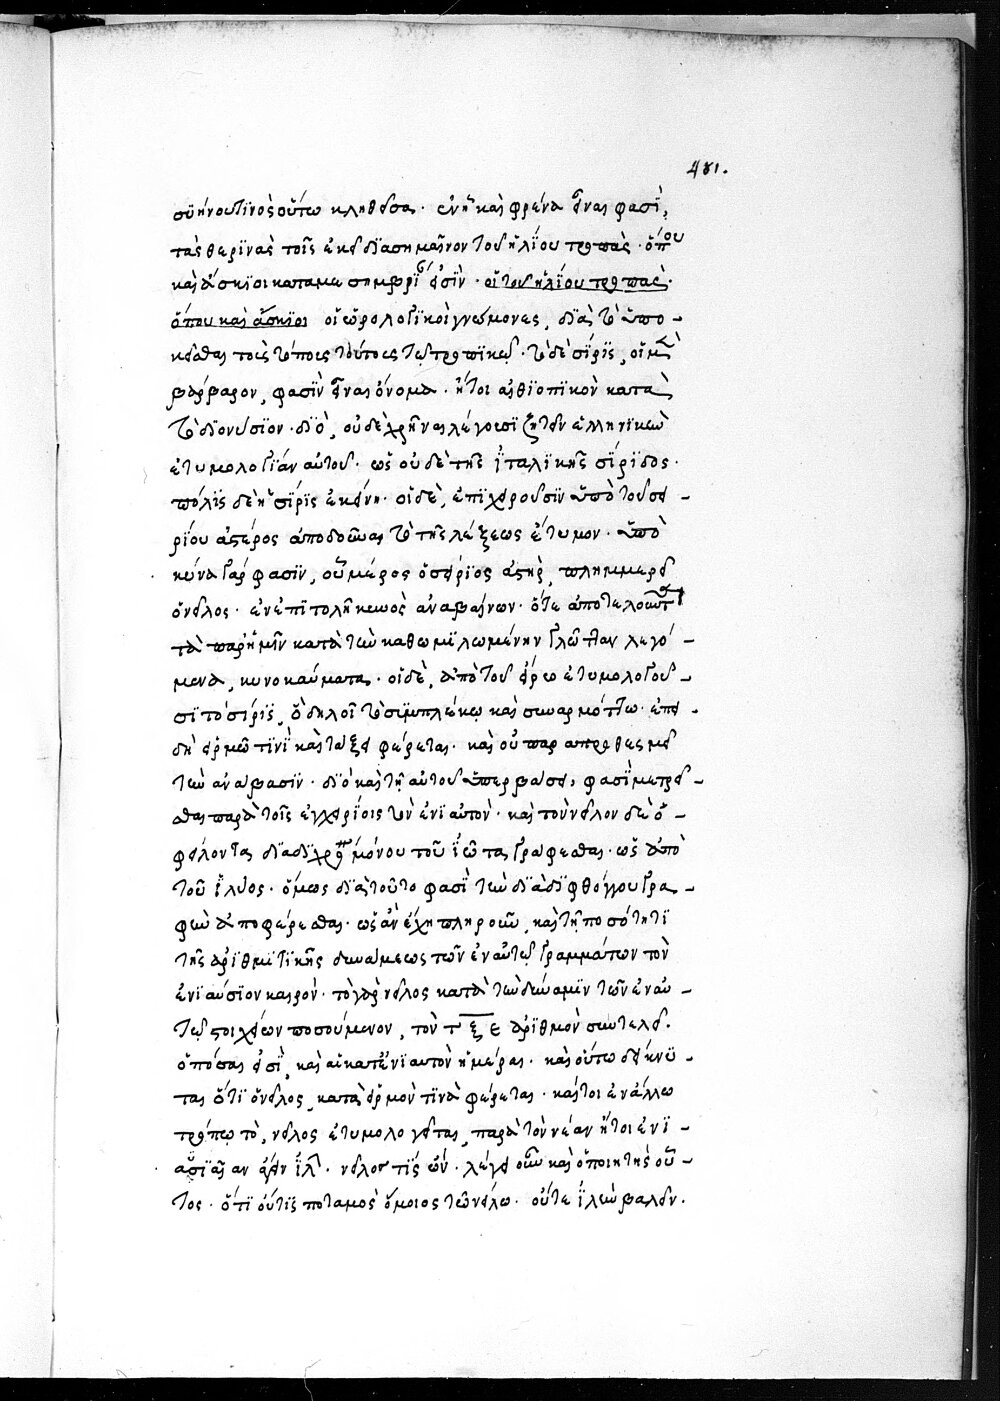 481.
συήνου τινὸς οὕτω κληθεῖσα. ἐν ᾗ καὶ φρέαρ εἶναι φασὶ,
τὰς θερινὰς τοῖς ἐκεῖ διασημαῖνον τοῦ ἡλίου τροπάς. ὅπου
καὶ ἄσκιοι κατὰ μεσημβρίαν εἰσὶν. οἱ τοῦ ἡλίου τροπὰς.
ὅπου καὶ ἄσκιοι οἱ ὡρολογικοὶ γνώμονες, διὰ τὸ ὑπο-
κεῖσθαι τοῖς τόποις τούτοις τῷ τροπικῷ. τὸ δὲ σίρις, οἱ μὲν
βάρβαρον, φασὶν εἶναι ὄνομα. ἤτοι αἰθιοπικὸν κατὰ
τὸ διονύσιον. διὸ, οὐδὲ χρῆναι λέγουσι ζητεῖν ἑλληνικὴν
ἐτυμολογίαν αὐτοῦ. ὡς οὐδὲ τῆς ἰταλικῆς σίριδος.
πόλις δὲ ἡ σίρις ἐκείνη. οἱ δὲ, ἐπιχειροῦσιν ὑπὸ τοῦ σει-
ρίου ἀστέρος ἀποδοῦναι τὸ τῆς λέξεως ἔτυμον. ὑπὸ
κύνα γάρ φασιν, οὗ μέρος ὁ σείριος ἀστὴρ, πλημμυρεῖ
ὁ νεῖλος. ἐν ἐπιτολῇ κυνὸς ἀναβαίνων. ὅτε ἀποτελοῦνται
τὰ παρ' ἡμῖν κατὰ τὴν καθωμιλωμένην γλῶτταν λεγό-
μενα, κυνοκαύματα. οἱ δὲ, ἀπὸ τοῦ εἴρω ἐτυμολογοῦ-
σι τὸ σίρις, ὃ δηλοῖ τὸ συμπλέκω καὶ συναρμόττω. ἐπει-
δὴ εἱρμῷ τινὶ καὶ τάξει φέρεται. καὶ οὐ παραπροθεσμεῖ
τὴν ἀνάβασιν. διὸ καὶ τῇ αὐτοῦ ὑπερβάσει, φασὶ μετρεῖ-
σθαι παρὰ τοῖς ἐγχωρίοις τὸν ἐνιαυτόν. καὶ τὸν νεῖλον δὲ ὀ-
φείλοντα διὰ διχρόνου μόνου τοῦ ἰῶτα γράφεσθαι. ὡς ἀπὸ
τοῦ ἰλύος. ὅμως διὰ τοῦτο φασὶ τὴν διὰ διφθόγγου γρα-
φὴν ἀποφέρεσθαι. ὡς ἂν ἔχῃ πληροῦν, καὶ τῇ ποσότητι
τῆς ἀριθμιτικῆς δυνάμεως τῶν ἐν αὐτῷ γραμμάτων τὸν
ἐνιαύσιον καιρόν. τὸ γὰρ νεῖλος κατὰ τὴν δύναμιν τῶν ἐν αὐ-
τῷ στοιχείων ποσούμενον, τὸν τξε ἀριθμὸν συντελεῖ.
ὁπόσαι εἰσὶ, καὶ αἱ κατ' ἐνιαυτὸν ἡμέραι. καὶ οὕτω δείκνυ-
ται ὅτι ὁ νεῖλος, κατὰ εἱρμόν τινα φέρεται. καί τοι ἐν ἄλλῳ
τρόπῳ τὸ, νεῖλος ἐτυμολογεῖται, παρὰ τὸν νέαν ἤτοι ἐνι-
αυσίαιαν ἄγειν ἰλύν. νεῖλός τις ὤν. λέγει οὖν καὶ ὁ ποιητὴς οὗ-
τος. ὅτι οὔτις ποταμὸς ὅμοιος τῷ νείλῳ. οὔτε ἰλὺν βαλεῖν.